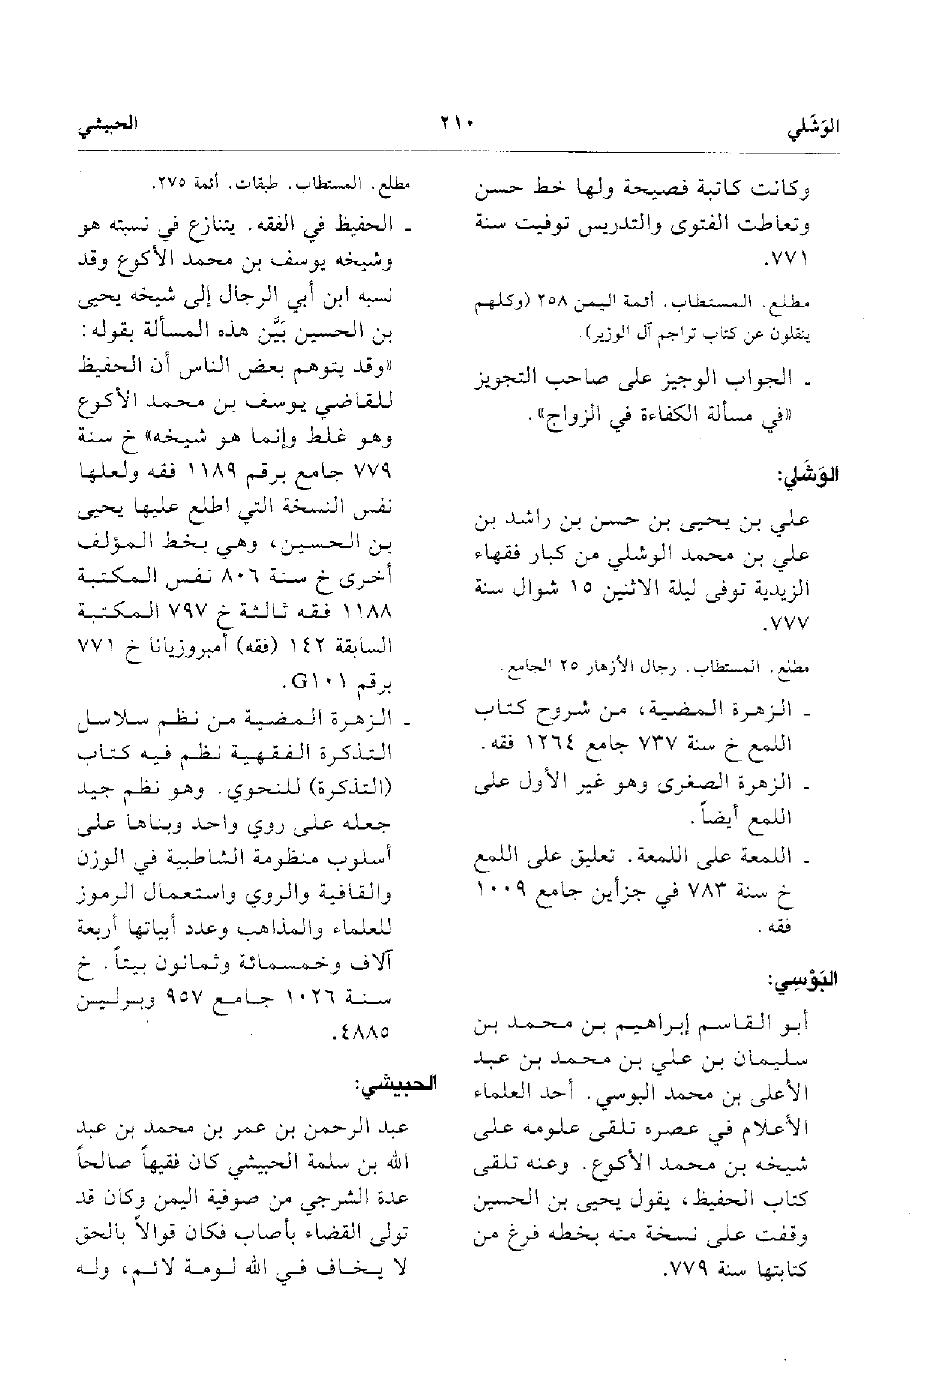 الوَشَلي
٢١٠
الحبيشي
وكانت كاتبة فصيحة ولها خط حسن
وتعاطت الفتوى والتدريس توفيت سنة
٧٧١.
مطلع. المستطاب. أئمة اليمن ٢٥٨ (وكلهم
ينقلون عن كتاب تراجم آل الوزير).
ـ الجواب الوجيز على صاحب التجويز
«في مسألة الكفاءة في الزواج».
الوَشَلي:
علي بن يحيى بن حسن بن راشد بن
علي بن محمد الوشلي من كبار فقهاء
الزيدية توفى ليلة الاثنين ١٥ شوال سنة
٧٧٧.
مطلع. المستطاب. رجال الأزهار ٢٥ الجامع.
ـ الزهرة المضية، من شروح كتاب
اللمع خ سنة ٧٣٧ جامع ١٢٦٤ فقه.
ـ الزهرة الصغرى وهو غير الأول على
اللمع أيضاً.
ـ اللمعة على اللمعة. تعليق على اللمع
خ سنة ٧٨٣ في جزأين جامع ١٠٠٩
فقه.
البَوْسِي:
أبو القاسم إبراهيم بن محمد بن
سليمان بن علي بن محمد بن عبد
الأعلى بن محمد البوسي. أحد العلماء
الأعلام في عصره تلقى علومه على
شيخه بن محمد الأكوع. وعنه تلقى
كتاب الحفيظ، يقول يحيى بن الحسين
وقفت على نسخة منه بخطه فرغ من
كتابتها سنة ٧٧٩.
مطلع. المستطاب. طبقات. أئمة ٢٧٥.
ـ الحفيظ في الفقه. يتنازع في نسبته هو
وشيخه يوسف بن محمد الأكوع وقد
نسبه ابن أبي الرجال إلى شيخه يحيى
بن الحسين بَيَّن هذه المسألة بقوله:
«وقد يتوهم بعض الناس أن الحفيظ
للقاضي يوسف بن محمد الأكوع
وهو غلط وإنما هو شيخه» خ سنة
٧٧٩ جامع برقم ١١٨٩ فقه ولعلها
نفس النسخة التي اطلع عليها يحيى
بن الحسين، وهي بخط المؤلف
أخرى خ سنة ٨٠٦ نفس المكتبة
١١٨٨ فقه ثالثة خ ٧٩٧ المكتبة
السابقة ١٤٢ (فقه) أمبروزيانا خ ٧٧١
برقم G١٠١.
ـ الزهرة المضية من نظم سلاسل
التذكرة الفقهية نظم فيه كتاب
(التذكرة) للنحوي. وهو نظم جيد
جعله على روي واحد وبناها على
أسلوب منظومة الشاطبية في الوزن
والقافية والروي واستعمال الرموز
للعلماء والمذاهب وعدد أبياتها أربعة
آلاف وخمسمائة وثمانون بيتاً. خ
سنة ١٠٢٦ جامع ٩٥٧ وبرلين
٤٨٨٥.
الحبيشي:
عبد الرحمن بن عمر بن محمد بن عبد
الله بن سلمة الحبيشي كان فقيهاً صالحاً
عدة الشرجي من صوفية اليمن وكان قد
تولى القضاء بأصاب فكان قوالاً بالحق
لا يخاف في الله لومة لائم، وله